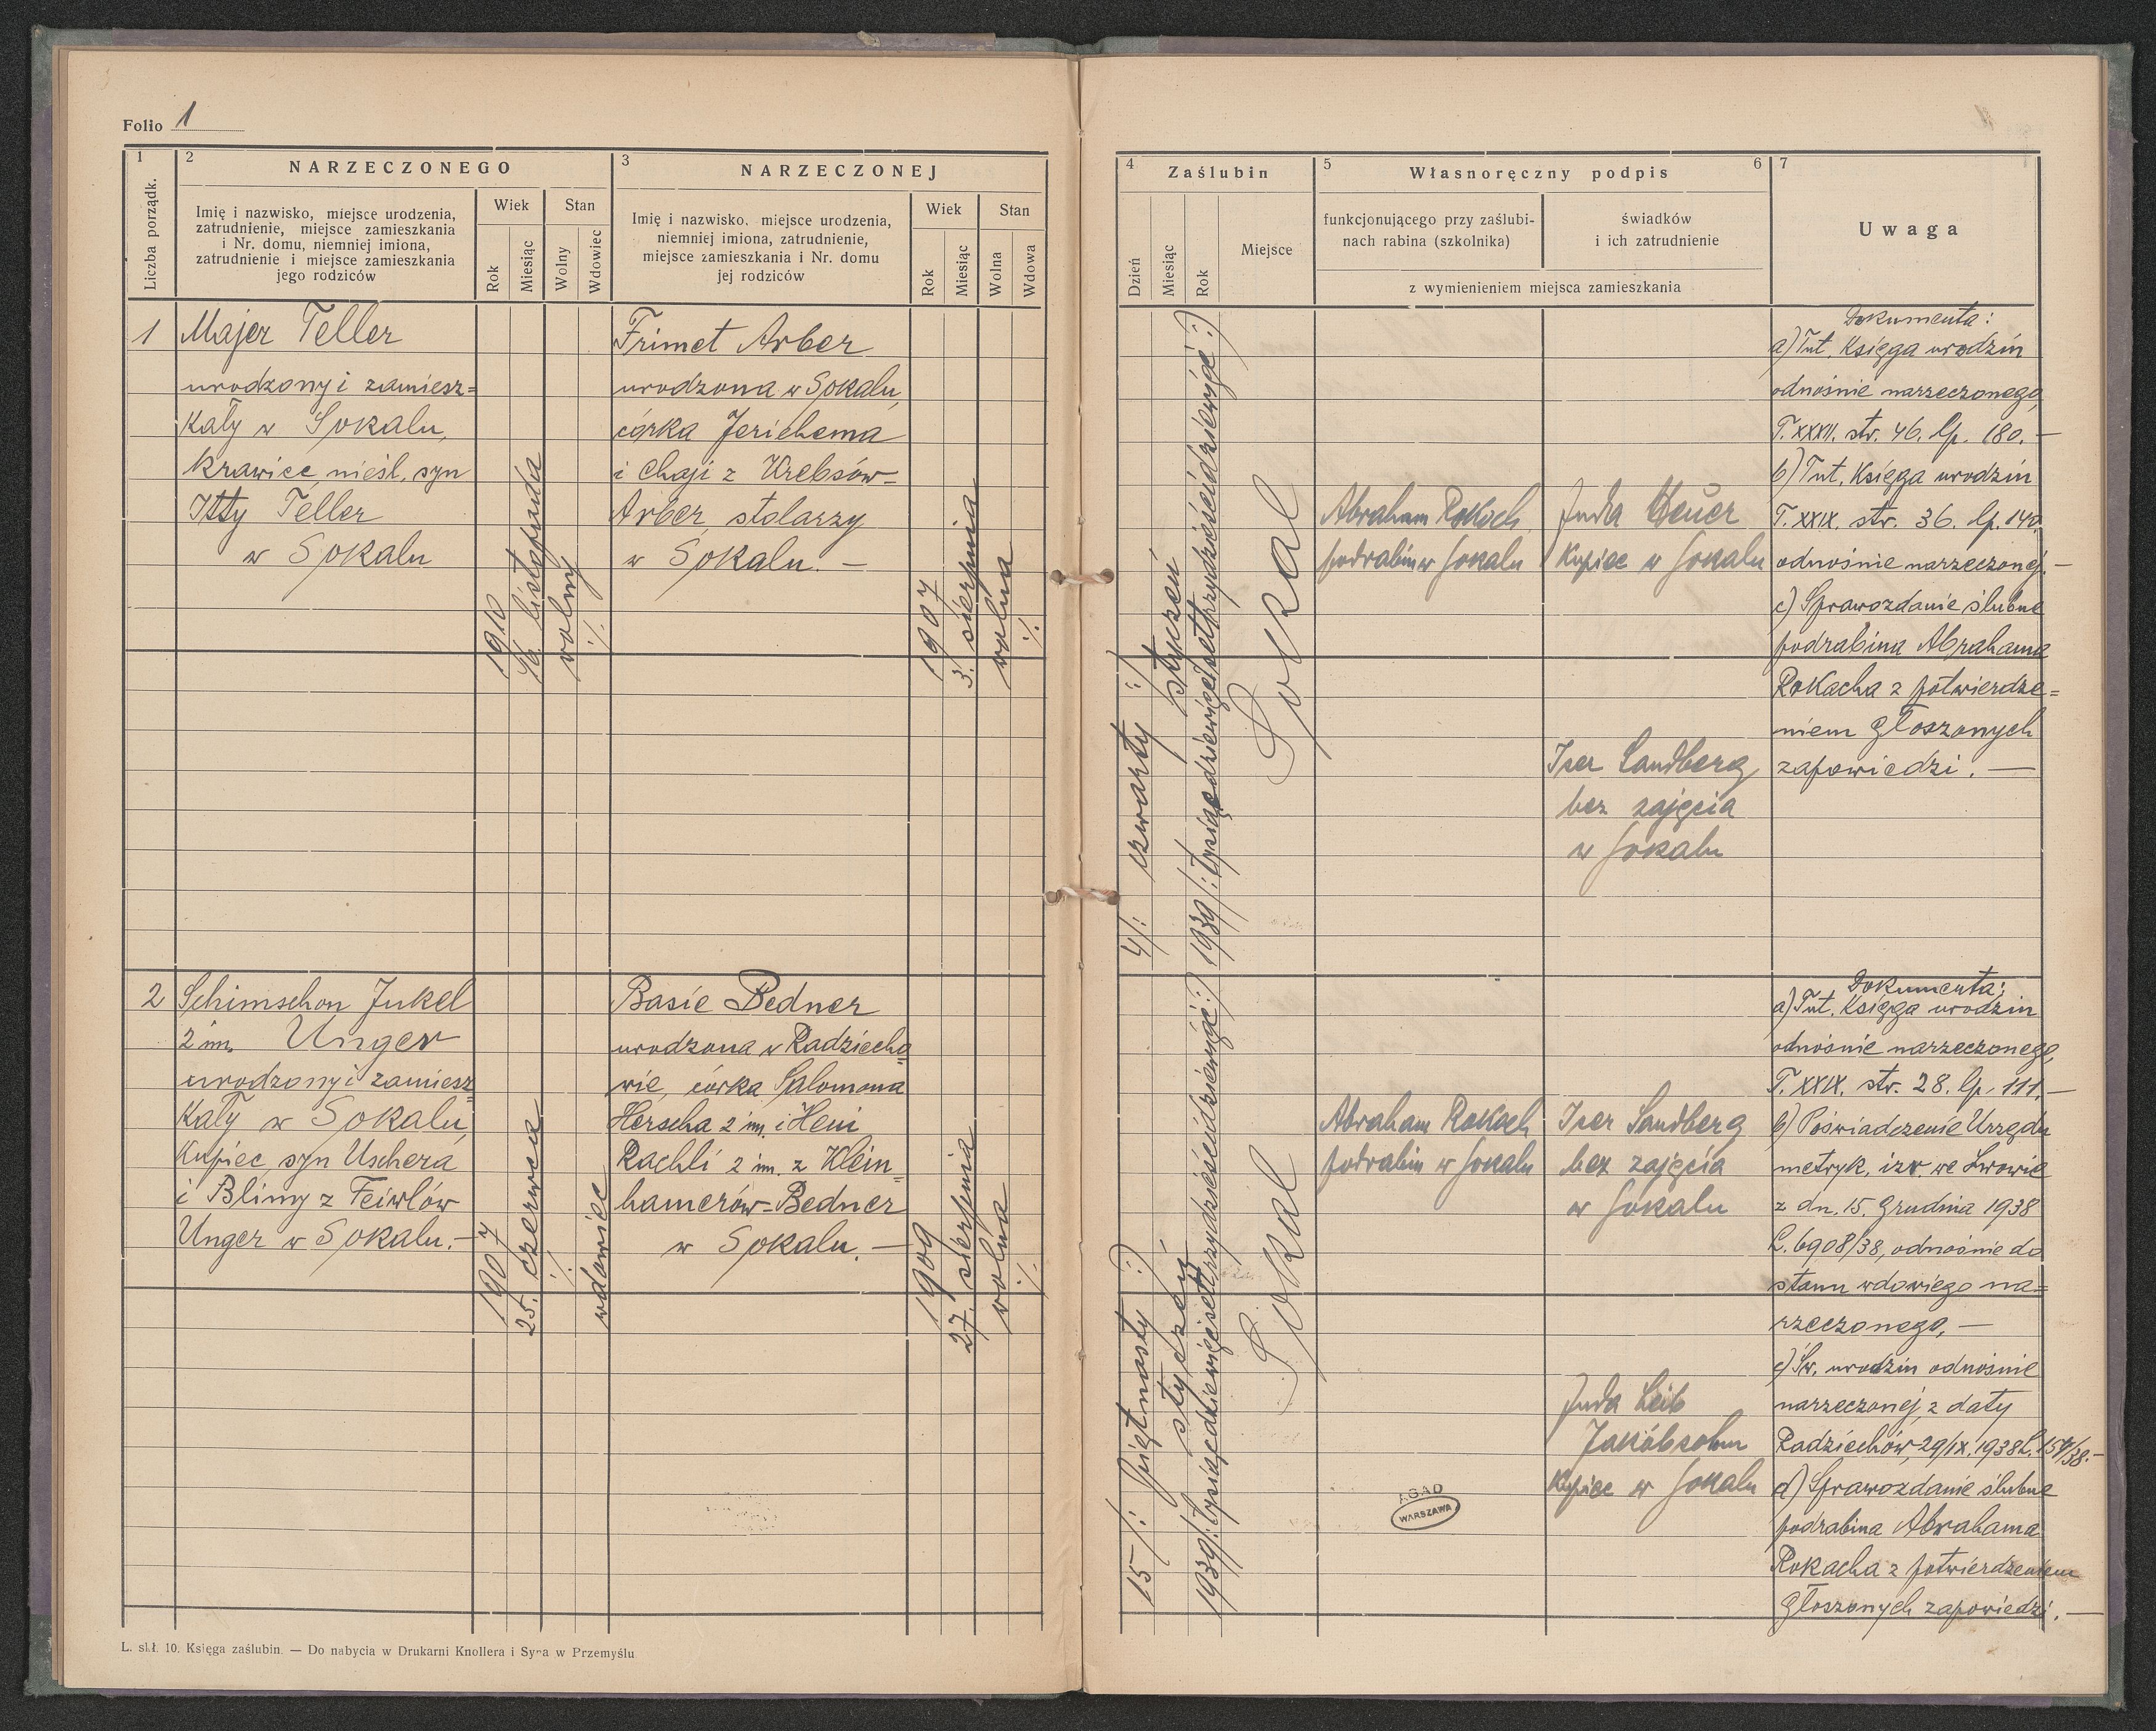 Folio 1
1
Liczba porządk.
2
NARZECZONEGO
Imię i nazwisko, miejsce urodzenia,
zatrudnienie, miejsce zamieszkania
i Nr. domu, niemniej imiona,
zatrudnienie i miejsce zamieszkania
jego rodziców
Wiek
Rok
Miesiąc
Stan
Wolny
Wdowiec
3
NARZECZONEJ
Imię i nazwisko, miejsce urodzenia,
niemniej imiona, zatrudnienie,
miejsce zamieszkania i Nr. domu
jej rodziców
Wiek
Rok
Miesiąc
Stan
Wolna
Wdowa
4
Zaślubin
Dzień
Miesiąc
Rok
Miejsce
5
Własnoręczny podpis
6
funkcjonującego przy zaślubi-
nach rabina (szkolnika)
świadków
i ich zatrudnienie
z wymienieniem miejsca zamieszkania
7
Uwaga
1
Majer Teller
urodzony i zamiesz=
kały w Sokalu,
krawiec, nieśl. syn
Itty Teller
w Sokalu
1910
listopada
wolny
·/.
Frimet Arber
urodzona w Sokalu,
córka Jerichema
i Chaji z Krebsów=
Arber, stolarzy
w Sokalu. —
1907
3. sierpnia
wolna
·/.
4/: czwarty :/
styczeń
1939/: tysiącdziewięćsettrzydzieścidziewięć :/
Sokal
Abraham Rokach
podrabin w Sokalu
Juda
Kupiec w Sokalu
Iser Sandberg
bez zajęcia
w Sokalu
Dokumenta:
a) Tut. Księga urodzin
odnośnie narzeczonego,
T. XXXII. str. 46. lp. 180. —
b) Tut. Księga urodzin
T. XXIX. str. 36. lp. 140.
odnośnie narzeczonej. —
c) Sprawozdanie ślubne
podrabina Abrahama
Rokacha z potwierdze=
niem głoszonych
zapowiedzi. —
2
Schimschon Jukel
2 im. Unger
urodzony i zamiesz
kały w Sokalu,
Kupiec, syn Uschera
i Blimy z Feiwlów
Unger w Sokalu. —
1907
25. czerwca
·/.
wdowiec
Basie Bedner
urodzona w Radziecho
wie, córka Salomona
Herscha 2 im. i Heni
Rachli 2 im. z Klein=
hamerów=Bedner
w Sokalu. —
1909
27. sierpnia
wolna
·/.
15/: piętnasty :/
styczeń
1939/: tysiącdziewięćsettrzydzieścidziewięć :/
Sokal
Abraham Rokach
podrabin w Sokalu
Iser Sandberg
bez zajęcia
w Sokalu
Juda Leib
Jakóbsohn
Kupiec w Sokalu
Dokumenta:
a) Tut. Księga urodzin
odnośnie narzeczonego,
T. XXIX. str. 28. lp. 111. —
b) Poświadczenie Urzędu
metryk. izr. we Lwowie
z dn. 15. Grudnia 1938
L. 6908/38, odnośnie do
stanu wdowiego na=
rzeczonego. —
c) Św. urodzin odnośnie
narzeczonej, z daty
Radziechów, 29/IX. 1938 L.
d) Sprawozdanie ślubne
podrabina Abrahama
Rokacha z potwierdzeniem
głoszonych zapowiedzi. —
AGAD
WARSZAWA
L. skł. 10. Księga zaślubin. — Do nabycia w Drukarni Knollera i Syna w Przemyślu